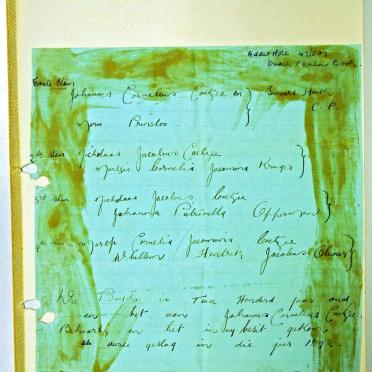 Addo Hole 49/507
Dutch Psalm Book
Eerste Stam
Johannes Cornelius Coetzee en } Somerset
C. P.
Prinsloo
2de Stam Nicholaas Jacobus Coetzee
Martje Cornelia Jacomina Kruger }
3rd Stam Nicholaas Jacobus Coetzee
Johanna Petronella Opperman }
Stam Martje Cornelia Jacomina Coetzee
Whillem Hendrik Jacobus Olivier }
Die Boek is Twee Honderd jaar oud
en het aan Johannes Cornelius Coetzee
Behoort en het in my besit gekom
as vierde geslag in die jaar